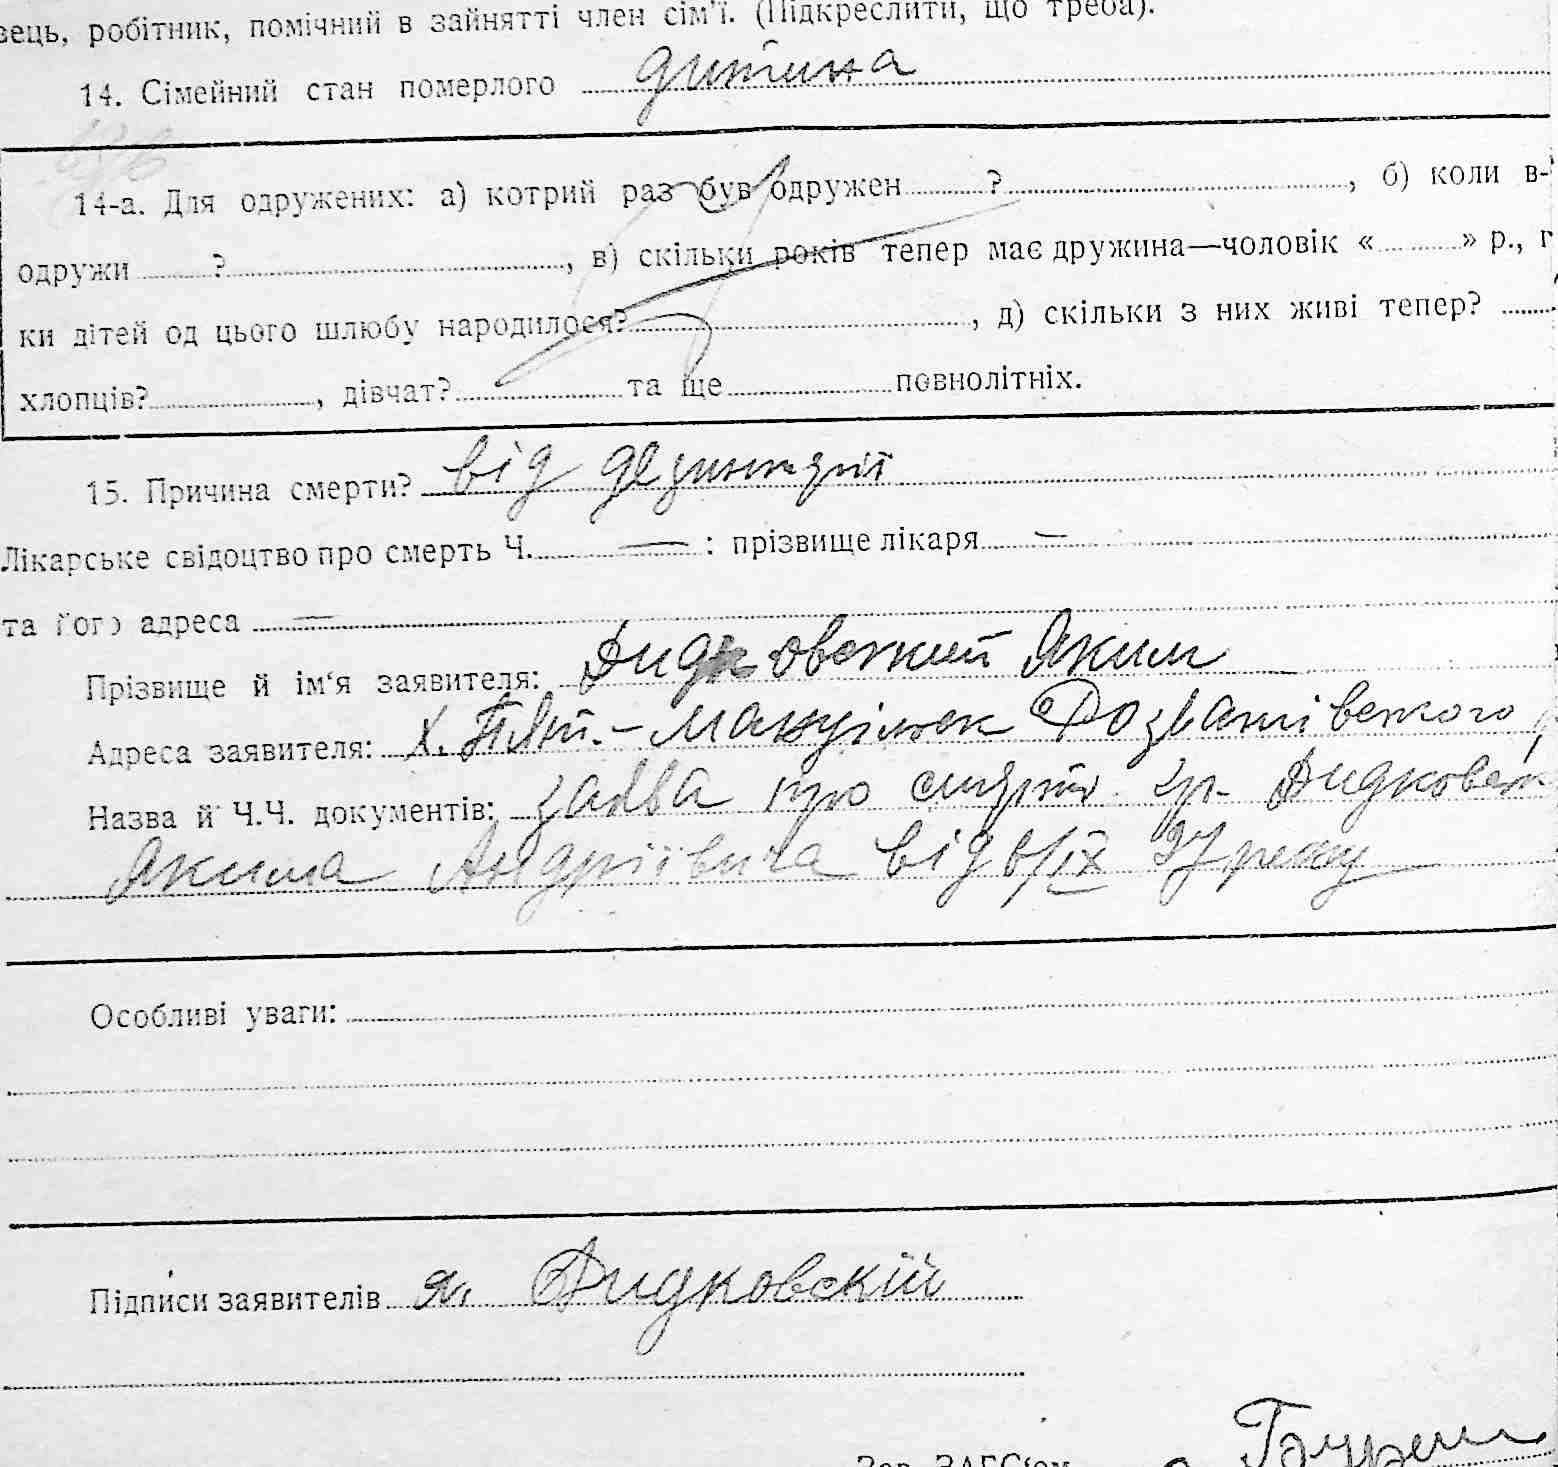 вець, робітник, помічний в зайнятті член сім'ї. (Підкреслити, що треба).
14. Сімейний стан померлого дитина
14-а. Для одружених: а) котрий раз був одружен ? , б) коли в-
одружи ? , в) скільки років тепер має дружина—чоловік « » р., г
ки дітей од цього шлюбу народилося? , д) скільки з них живі тепер?
хлопців? , дівчат? та ще повнолітніх.
15. Причина смерти? від дезинтерії
Лікарське свідоцтво про смерть Ч. — : прізвище лікаря —
та його адреса —
Прізвище й ім'я заявителя: Дидковський Яким
Адреса заявителя: х.
Назва й Ч.Ч. документів: заява про смерть гр. Дидковськ
Якима Андріївича від 6/IX 27 року
Особливі уваги:
Підписи заявителів Я. Дидковскій
Зав. ЗАГС'ом